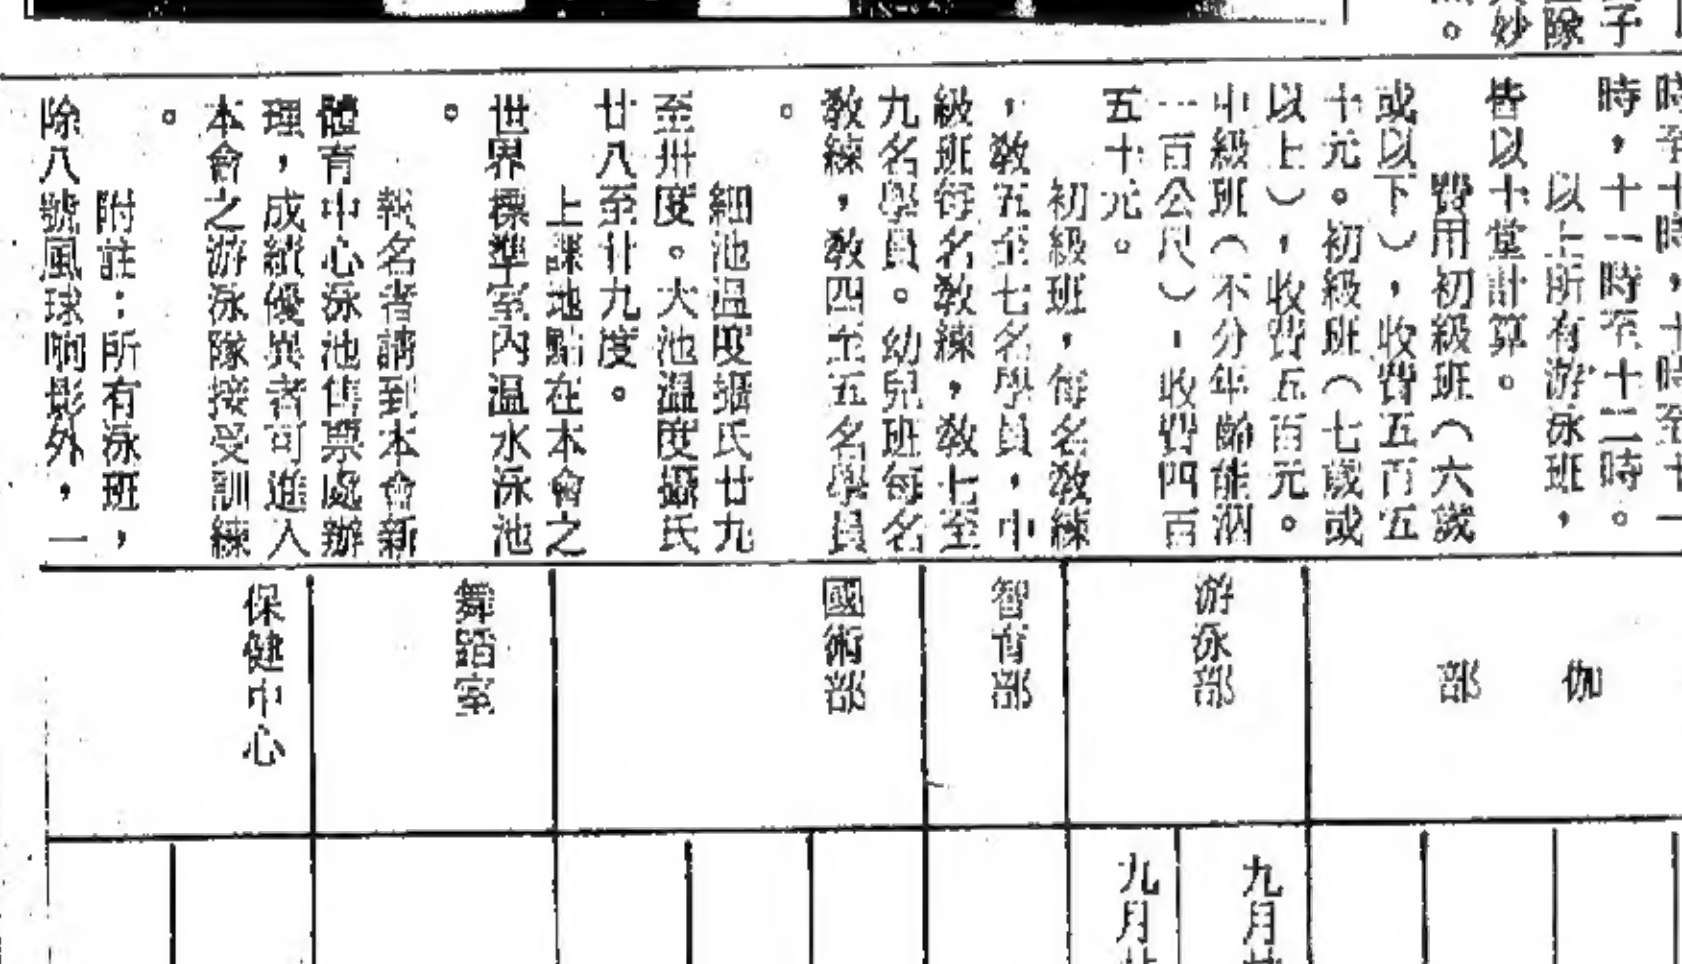 子
隊
妙
。
時至十時，十時至十一
時，十一時至十二時。
以上所有游泳班，
皆以十堂計算。
費用初級班（六歲
或以下），收費五百五
十元。初級班（七歲或
以上），收費五百元。
中級班（不分年齡能泅
一百公尺），收費四百
五十元。
初級班，每名教練
，教五至七名學員，中
級班每名教練，教七至
九名學員。幼兒班每名
教練，教四至五名學員
。
細池温度攝氏廿九
至卅度。大池温度攝氏
廿八至廿九度。
上課地點在本會之
世界標準室內温水泳池
。
報名者請到本會新
體育中心泳池售票處辦
理，成績優異者可進入
本會之游泳隊接受訓練
。
附註：所有泳班，
除八號風球响影外，一
伽
部
游泳部
智育部
國術部
舞蹈室
保健中心
九月
九月